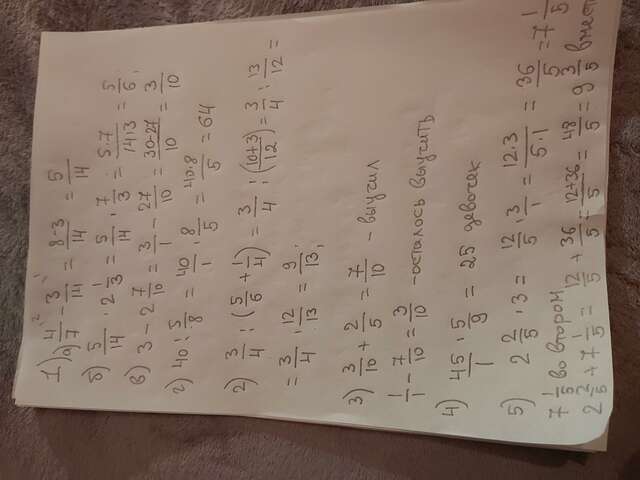 1) а) 4/7 - 3/14 = 8-3/14 = 5/14
б) 5/14 · 2 1/3 = 5/14 · 7/3 = 5·7/14·3 = 5/6;
в) 3 - 2 7/10 = 3/1 - 27/10 = 30-27/10 = 3/10
г) 40 : 5/8 = 40/1 · 8/5 = 40·8/5 = 64
2) 3/4 : (5/6 + 1/4) = 3/4 : (10+3/12) = 3/4 : 13/12 =
= 3/4 · 12/13 = 9/13;
3) 3/10 + 2/5 = 7/10 - выучил
1/1 - 7/10 = 3/10 - осталось выучить
4) 45/1 · 5/9 = 25 девочек
5) 2 2/5 · 3 = 12/5 · 3/1 = 12·3/5·1 = 36/5 = 7 1/5
7 1/5 во втором
2 2/5 + 7 1/5 = 12/5 + 36/5 = 12+36/5 = 48/5 = 9 3/5